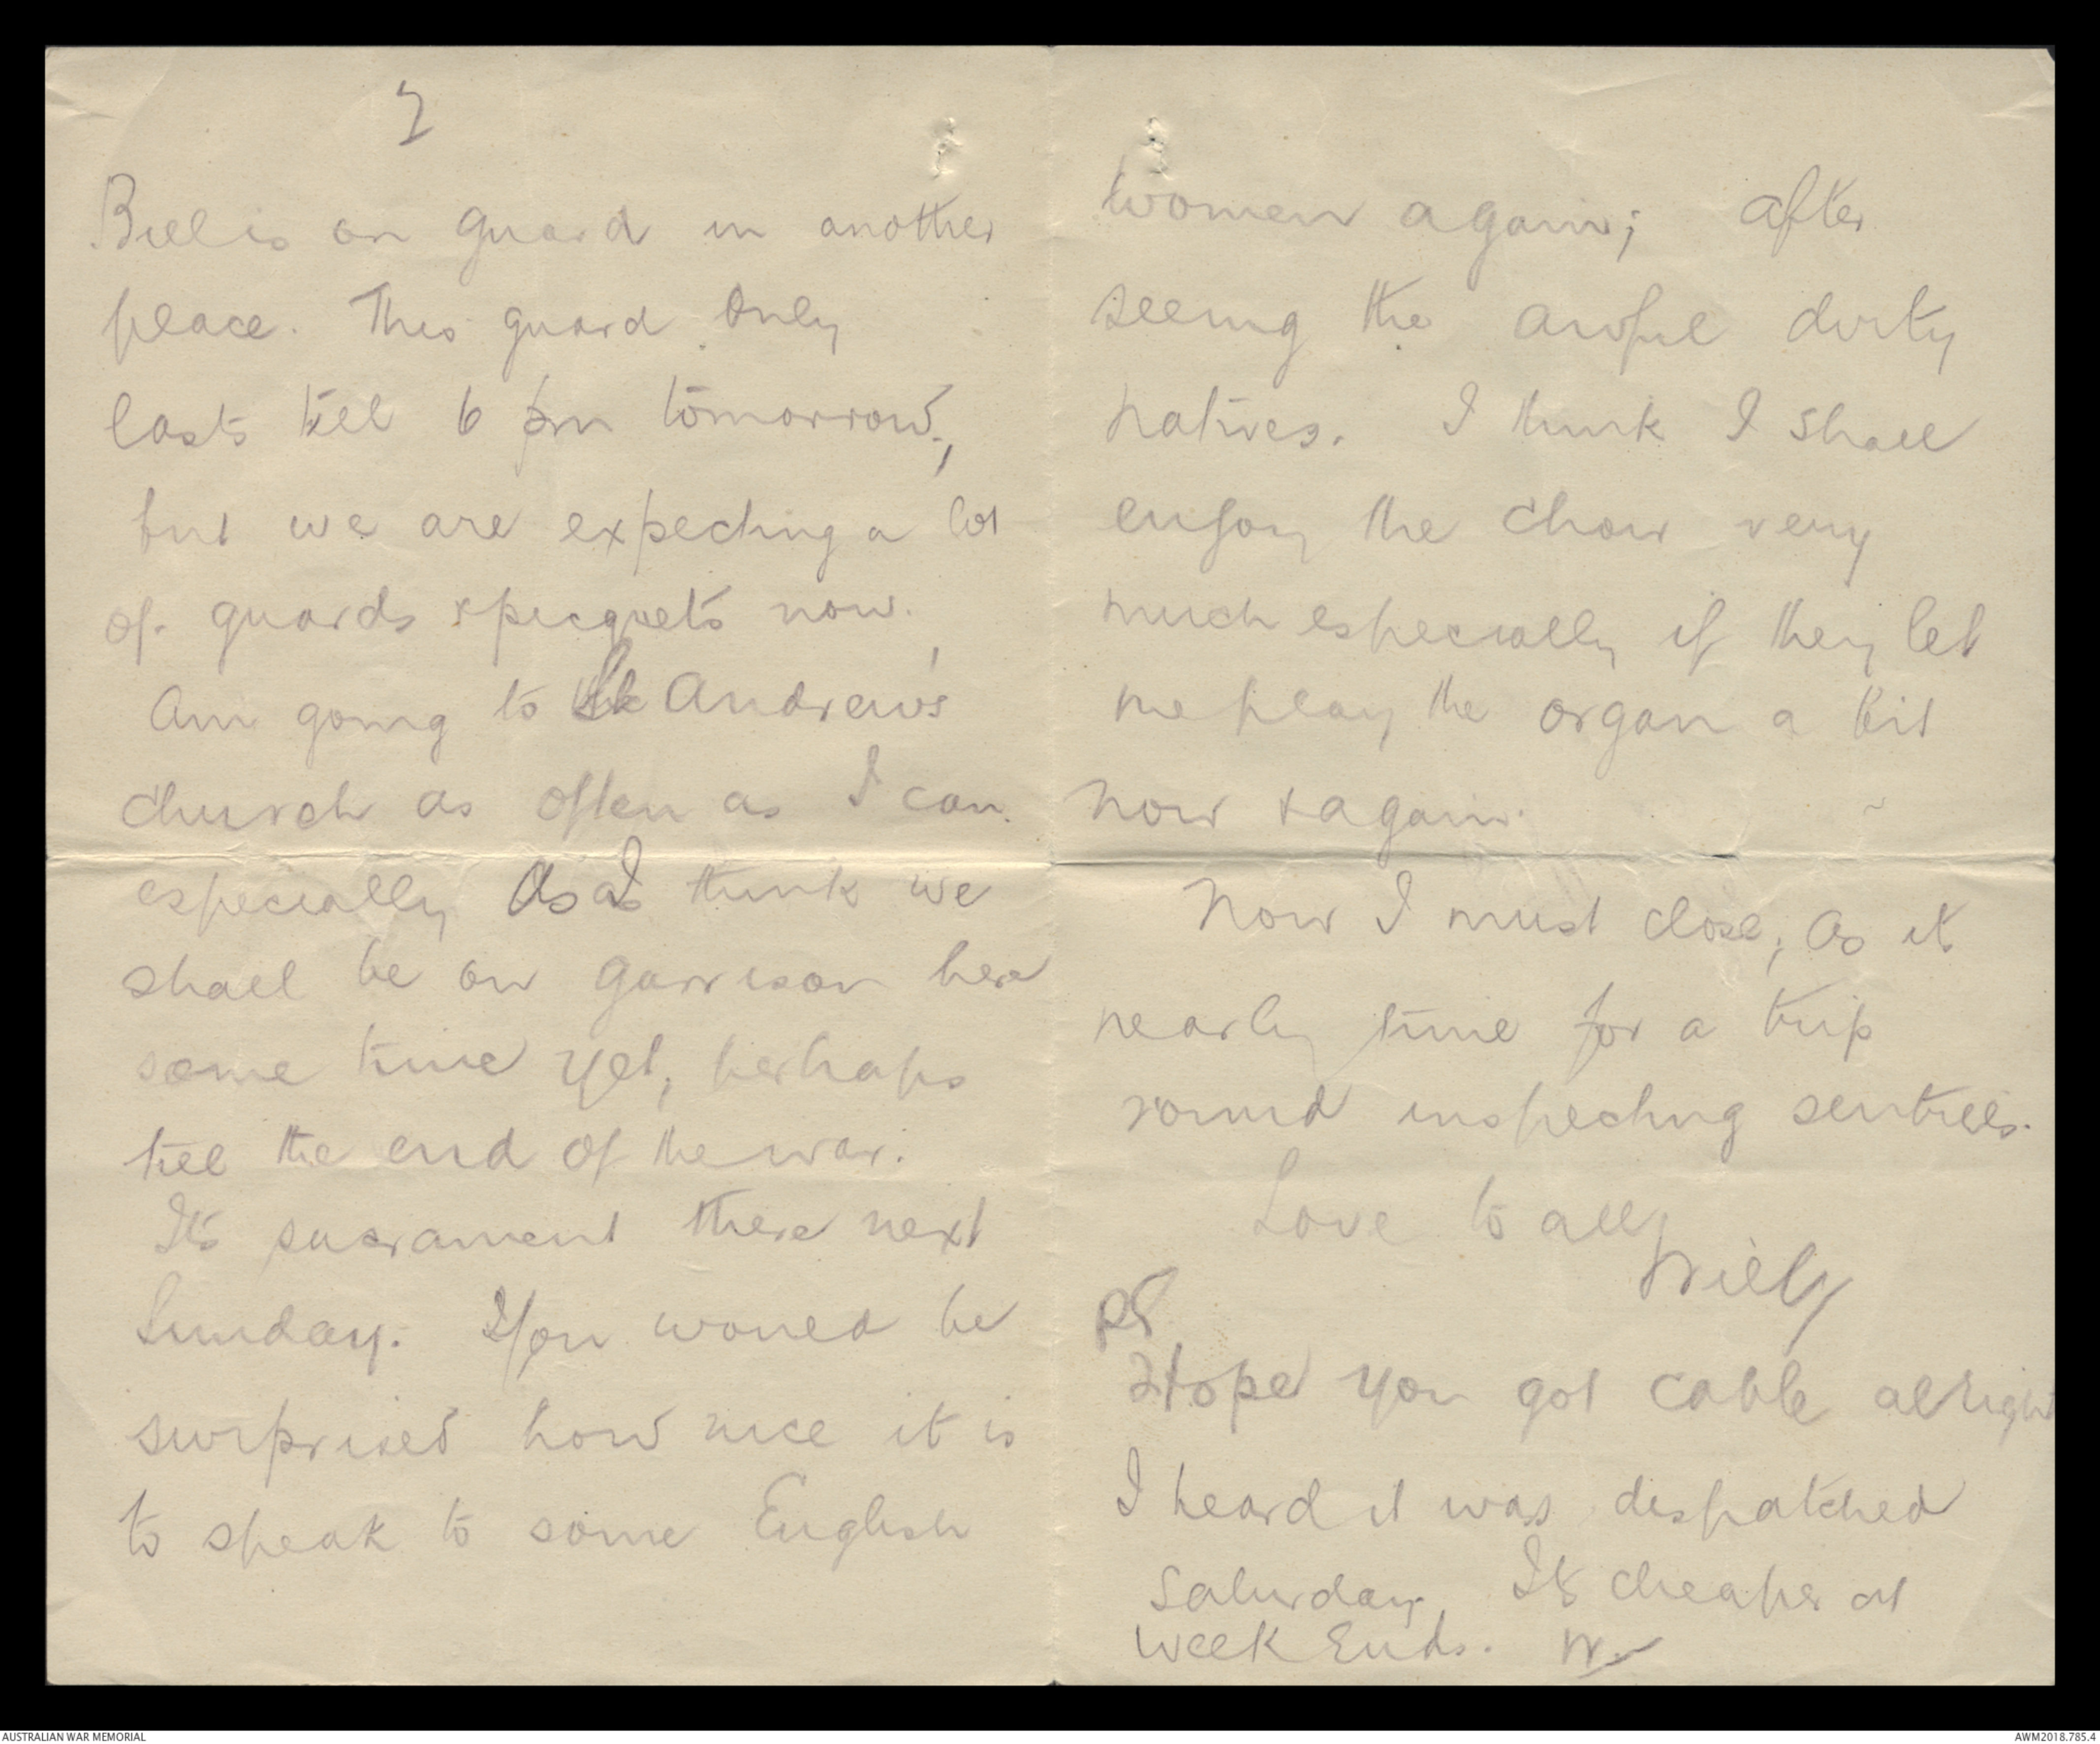 7
Bill is on guard in another
place. This guard only
lasts till 6 pm tomorrow,
but we are expecting a lot
of guards & picquets now.
Am going to St Andrew's
church as often as I can.
especially as I think we
shall be on garrison here
some time yet, perhaps
till the end of the war.
Its sacrament there next
Sunday. You would be
surprised how nice it is
to speak to some English
women again; after
seeing the awful dirty
natives. I think I shall
enjoy the choir very
much especially if they let
me play the organ a bit
now & again.
Now I must close, as it
nearly time for a trip
round inspecting sentries.
Love to all,
Willy
PS
Hope you got cable alright
I heard it was despatched
Saturday. Its cheaper at
Week Ends. W.
AUSTRALIAN WAR MEMORIAL
AWM2018.785.4